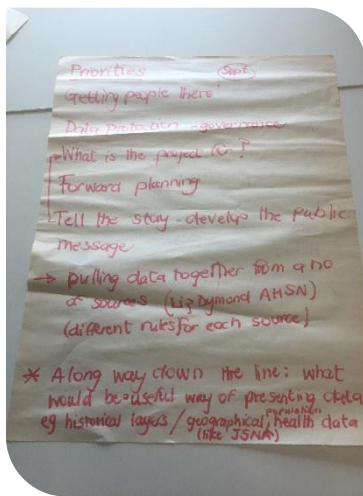 Priorities Start
Getting people there'
Data protection - governance
What is the project for?
Forward planning
Tell the story - develop the public
message
→ pulling data together from a no
of sources (Liz Dymond AHSN)
(different rules for each source)
* A long way down the line: what
would be useful way of presenting data
eg historical layers / geographical, population health data
(like JSNA)